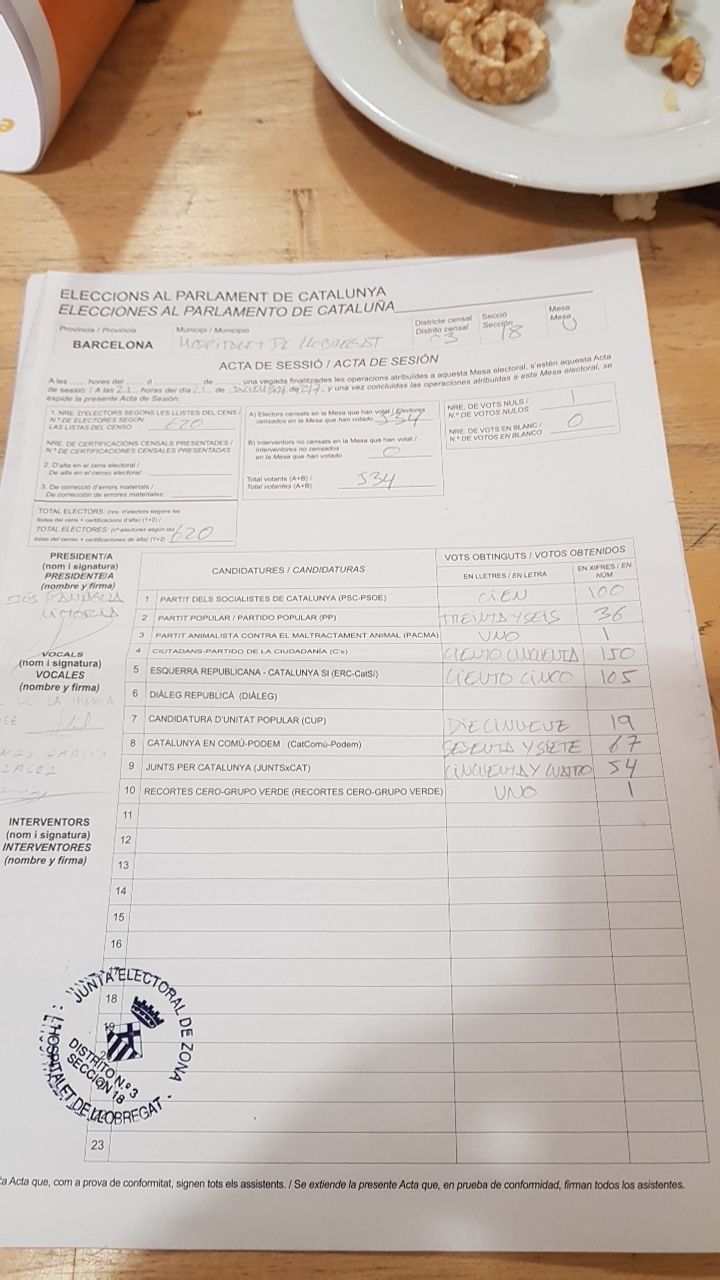 ELECCIONS AL PARLAMENT DE CATALUNYA
ELECCIONES AL PARLAMENTO DE CATALUÑA
Província / Provincia
BARCELONA
Municipi / Municipio
HOSPITALET DE LLOBREGAT
Districte censal
Distrito censal
03
Secció
Sección
18
Mesa
Mesa
U
ACTA DE SESSIÓ / ACTA DE SESIÓN
A les ___ hores del ___ d ___ de ___, una vegada finalitzades les operacions atribuïdes a aquesta Mesa electoral, s'estén aquesta Acta
de sessió / A las 21 horas del día 21 de DICIEMBRE de 2017, y una vez concluidas las operaciones atribuidas a esta Mesa electoral, se
expide la presente Acta de Sesión:
1. NRE. D'ELECTORS SEGONS LES LLISTES DEL CENS /
N.º DE ELECTORES SEGÚN
LAS LISTAS DEL CENSO 620
NRE. DE CERTIFICACIONS CENSALS PRESENTADES /
N.º DE CERTIFICACIONES CENSALES PRESENTADAS
2. D'alta en el cens electoral /
De alta en el censo electoral:
3. De correcció d'errors materials /
De corrección de errores materiales:
TOTAL ELECTORS: (nre. d'electors segons les
llistes del cens + certificacions d'alta) (1+2) /
TOTAL ELECTORES: (nº electores según las
listas del censo + certificaciones de alta) (1+2) 620
A) Electors censats en la Mesa que han votat / Electores
censados en la Mesa que han votado 534
B) Interventors no censats en la Mesa que han votat /
Interventores no censados
en la Mesa que han votado 0
Total votants (A+B) /
Total votantes (A+B) 534
NRE. DE VOTS NULS /
N.º DE VOTOS NULOS 1
NRE. DE VOTS EN BLANC /
N.º DE VOTOS EN BLANCO 0
PRESIDENT/A
(nom i signatura)
PRESIDENTE/A
(nombre y firma)
VICTORIA
VOCALS
(nom i signatura)
VOCALES
(nombre y firma)
INTERVENTORS
(nom i signatura)
INTERVENTORES
(nombre y firma)
CANDIDATURES / CANDIDATURAS
VOTS OBTINGUTS / VOTOS OBTENIDOS
EN LLETRES / EN LETRA
EN XIFRES / EN NÚM
1 PARTIT DELS SOCIALISTES DE CATALUNYA (PSC-PSOE) CIEN 100
2 PARTIT POPULAR / PARTIDO POPULAR (PP) TREINTA Y SEIS 36
3 PARTIT ANIMALISTA CONTRA EL MALTRACTAMENT ANIMAL (PACMA) UNO 1
4 CIUTADANS-PARTIDO DE LA CIUDADANÍA (C's) CIENTO CINCUENTA 150
5 ESQUERRA REPUBLICANA - CATALUNYA SÍ (ERC-CatSí) CIENTO CINCO 105
6 DIÀLEG REPUBLICÀ (DIÀLEG)
7 CANDIDATURA D'UNITAT POPULAR (CUP) DIECINUEVE 19
8 CATALUNYA EN COMÚ-PODEM (CatComú-Podem) SESENTA Y SIETE 67
9 JUNTS PER CATALUNYA (JUNTSxCAT) CINCUENTA Y CUATRO 54
10 RECORTES CERO-GRUPO VERDE (RECORTES CERO-GRUPO VERDE) UNO 1
11
12
13
14
15
16
18
23
JUNTA ELECTORAL DE ZONA
L'HOSPITALET DE LLOBREGAT -
DISTRITO N.º 3
SECCION 18
Acta que, com a prova de conformitat, signen tots els assistents. / Se extiende la presente Acta que, en prueba de conformidad, firman todos los asistentes.